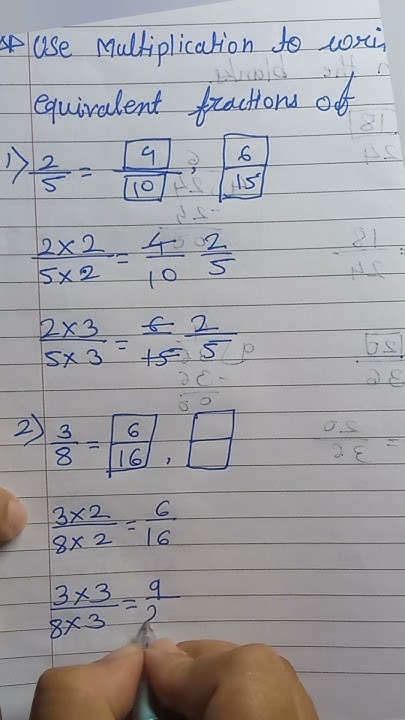 Use Multiplication to wri
equivalent fractions of
1) 2/5 = 4/10, 6/15
2×2/5×2 = 4/10 2/5
2×3/5×3 = 6/15 2/5
2) 3/8 = 6/16,
3×2/8×2 = 6/16
3×3/8×3 = 9/2